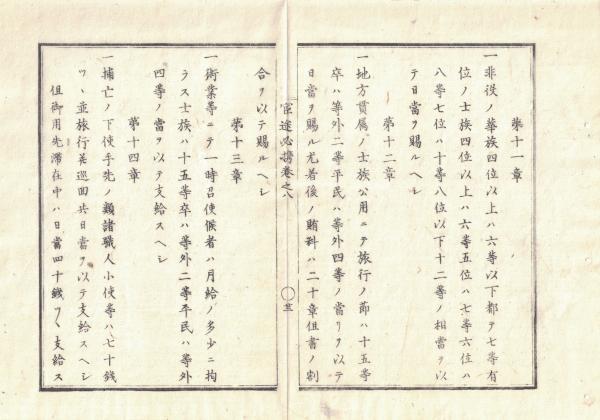 第十一章
一非役ノ華族四位以上ハ六等以下都テ七等有
位ノ士族四位以上ハ六等五位ハ七等六位ハ
八等七位ハ十等八位以下十二等ノ相當ヲ以
テ日當ヲ賜ルヘシ
第十二章
一地方貫属ノ士族公用ニテ旅行ノ節ハ十五等
卒ハ等外二等平民ハ等外四等ノ當リヲ以テ
日當ヲ賜ル尤着後ノ賄料ハ二十章但書ノ割
官途必携巻之八
〇 廿三
合ヲ以テ賜ルヘシ
第十三章
一術業等ニテ一時召使候者ハ月給ノ多少ニ拘
ラス士族ハ十五等卒ハ等外二等平民ハ等外
四等ノ當ヲ以テ支給スヘシ
第十四章
一補亡ノ下使手先ノ類諸職人小使等ハ七十錢
ツヽ並旅行并巡回共日當ヲ以テ支給スヘシ
但御用先滞在中ハ日當四十錢ツヽ支給ス